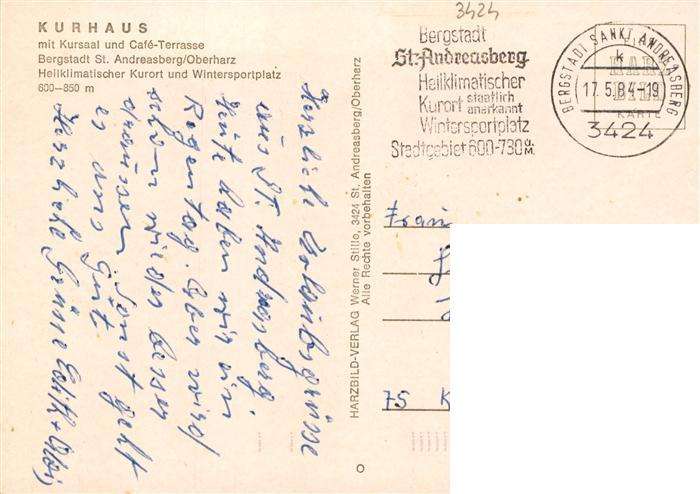 KURHAUS
mit Kursaal und Café-Terrasse
Bergstadt St. Andreasberg/Oberharz
Heilklimatischer Kurort und Wintersportplatz
600—850 m
Herzlich Urlaubsgrüsse
aus St. Andreasberg.
Heute haben wir ein
Regentag. Aber wird
schon wieder besser
draussen. Sonst geht
es uns gut.
Herzliche Grüsse Edith +
HARZBILD-VERLAG Werner Stille, 3424 St. Andreasberg/Oberharz
Alle Rechte vorbehalten
O
3424
Bergstadt
St. Andreasberg
Heilklimatischer
Kurort staatlich anerkannt
Wintersportplatz
Stadtgebiet 600-730 ü.M.
BERGSTADT SANKT ANDREASBERG
k
17.5.84-19
3424
KARTE
75 K